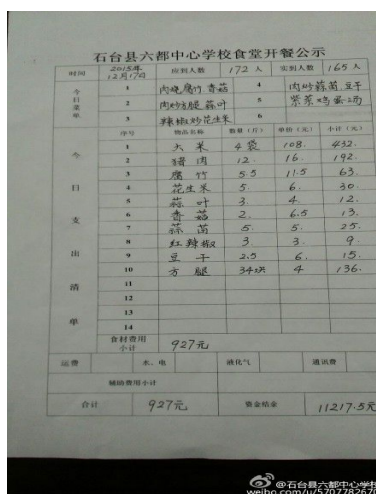 石台县六都中心学校食堂开餐公示
时间 2015年12月17日 应到人数 172人 实到人数 165人
今日菜单 1 肉烧腐竹香菇 4 肉炒蒜苗豆干
2 肉炒方腿蒜叶 5 紫菜鸡蛋汤
3 辣椒炒花生米 6
今日支出清单 序号 物品名称 数量(斤) 单价(元) 小计(元)
1 大米 4袋 108. 432.
2 猪肉 12. 16. 192
3 腐竹 5.5 11.5 63
4 花生米 5. 6. 30
5 蒜叶 3. 4. 12.
6 香菇 2. 6.5 13.
7 蒜苗 5. 5. 25.
8 红辣椒 3 3. 9
9 豆干 2.5 6. 15.
10 方腿 34块 4 136.
11
12
13
14
食材费用小计 927元
运费 水、电 液化气 通讯费
辅助费用小计
合计 927元 资金结余 11217.5元
@石台县六都中心学校
weibo.com/u/5707782670